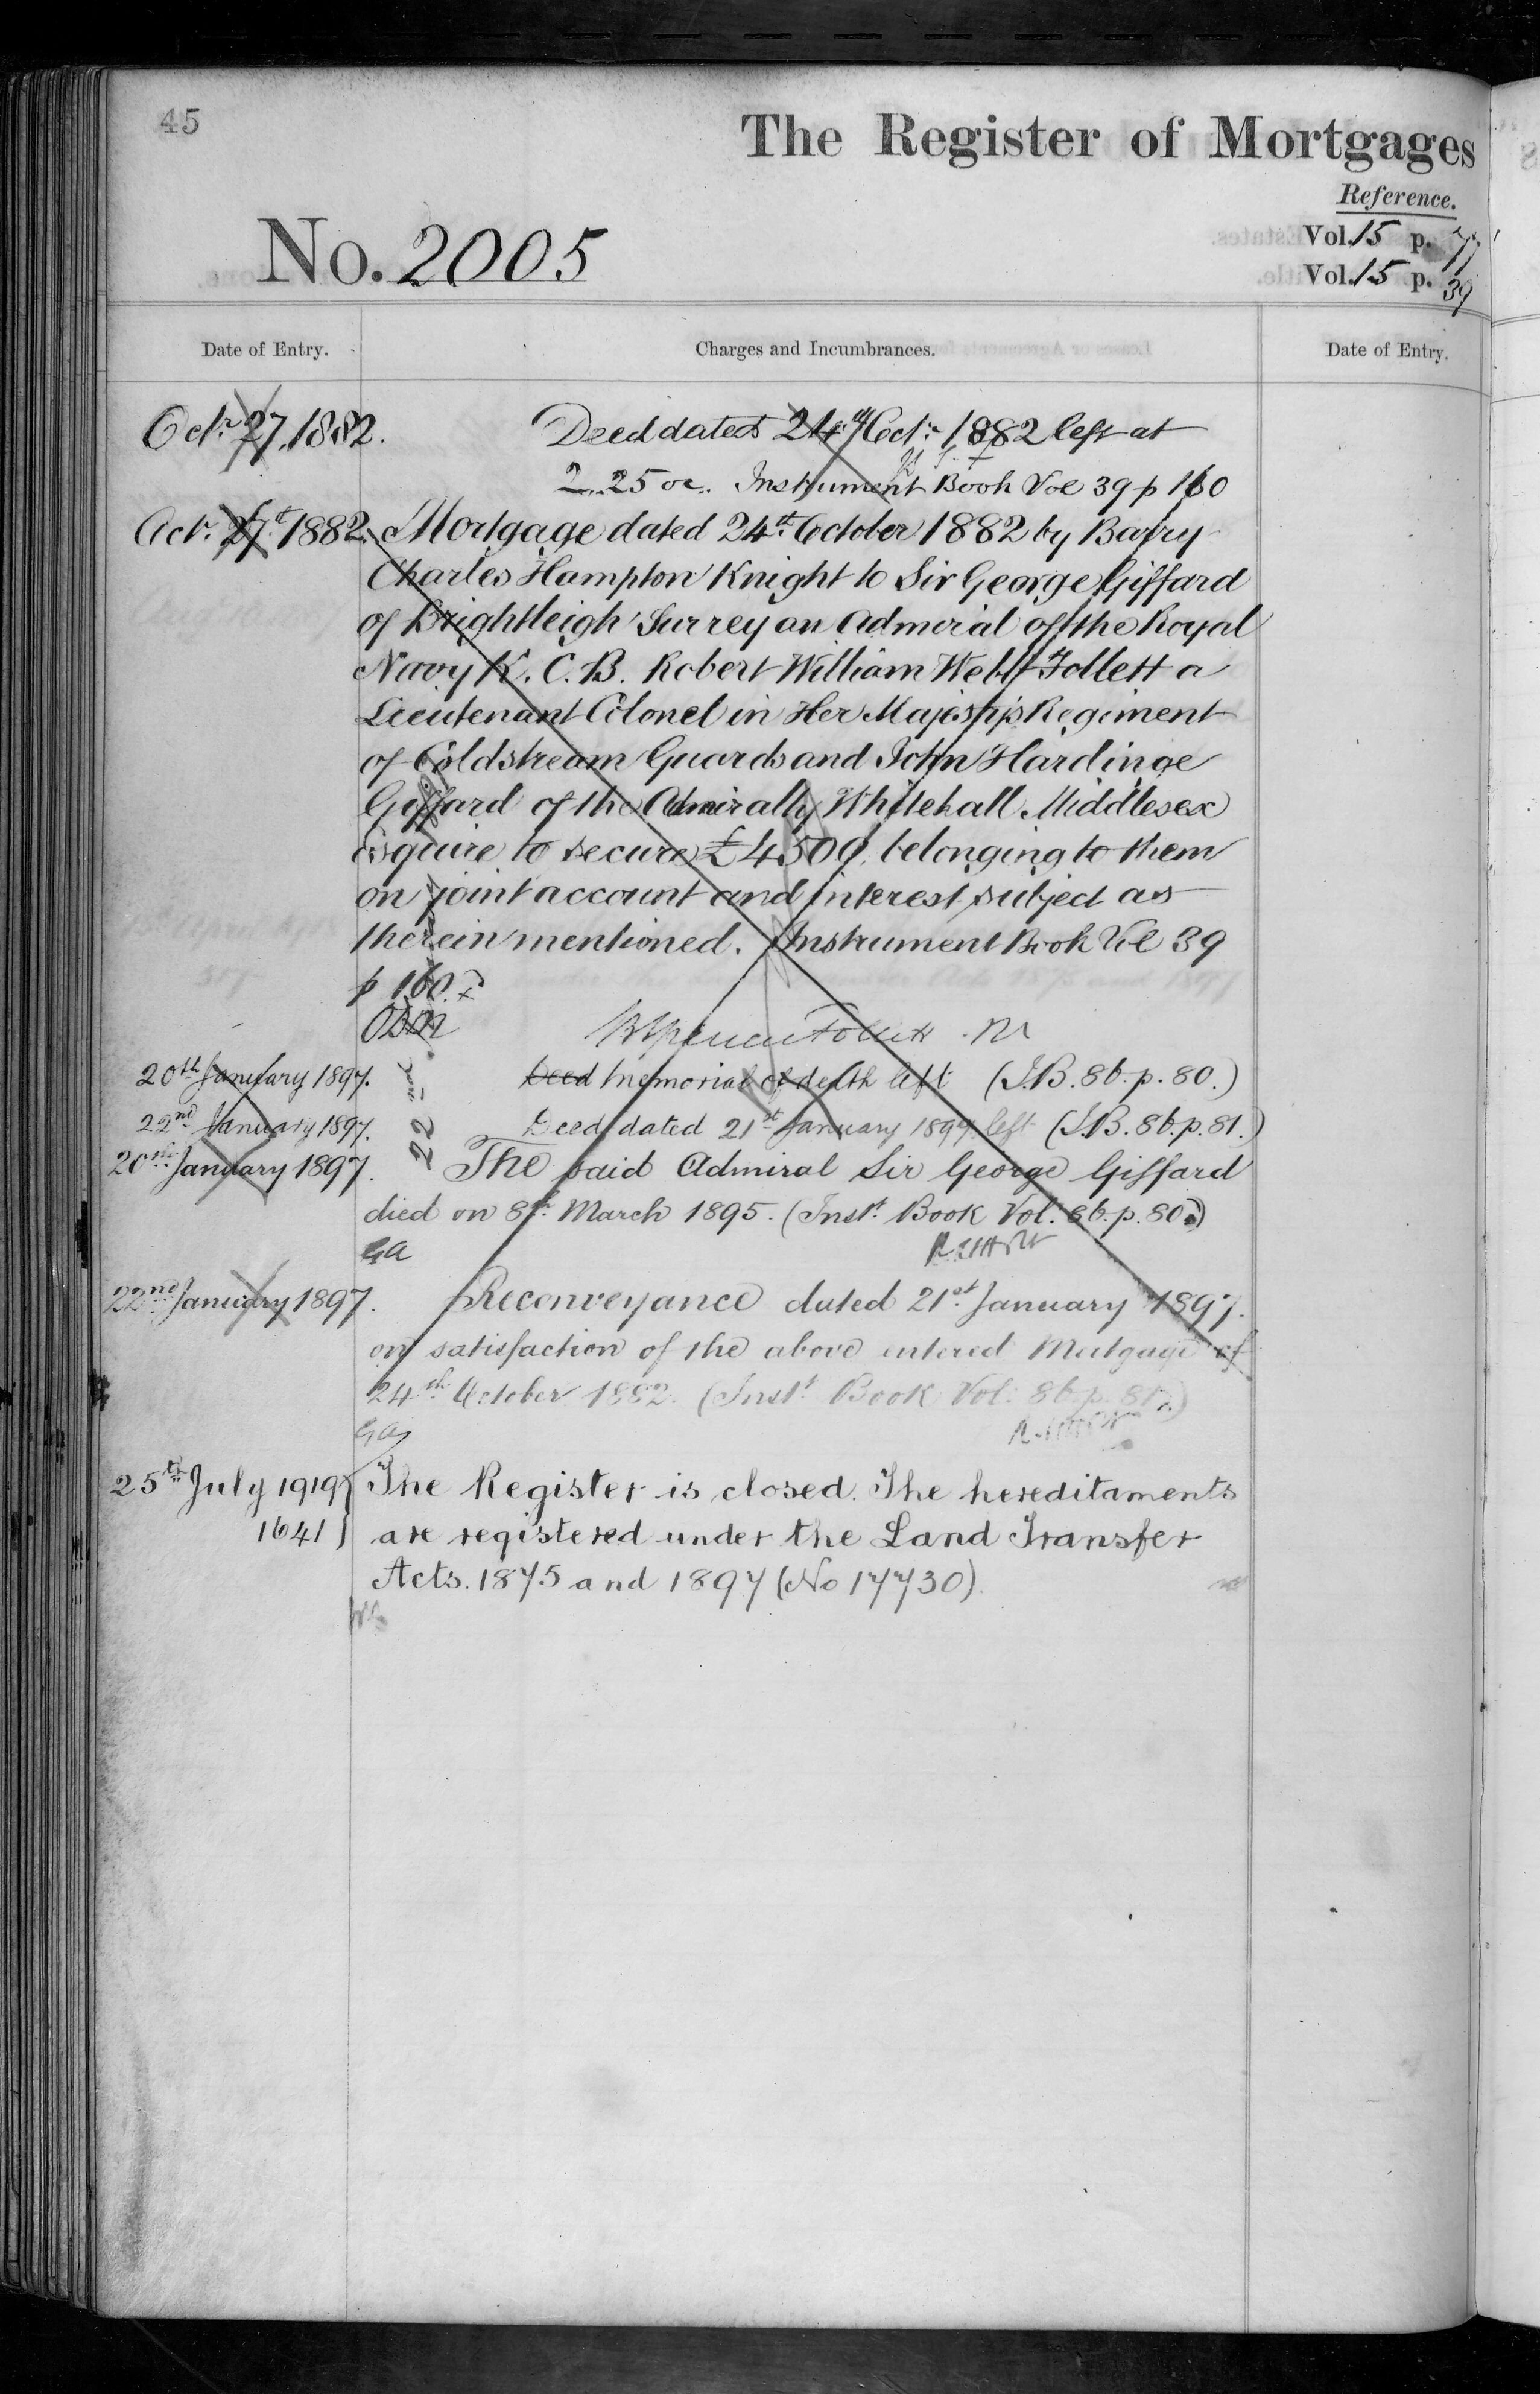 45
The Register of Mortgages
Reference.
No. 2005
Vol. 15 p. 77
Vol. 15 p. 39
Date of Entry.
Charges and Incumbrances.
Date of Entry.
Octr. 27, 1882.
Deed dated 24th Octr. 1882 left at
2..25 oc. Instrument Book Vol 39 p 160
Octr. 27th 1882. Mortgage dated 24th October 1882 by Barry
Charles Hampton Knight to Sir George Giffard
of Brightleigh Surrey an Admiral of the Royal
Navy K. C. B. Robert William Webb Follett a
Lieutenant Colonel in Her Majesty's Regiment
of Coldstream Guards and John Hardinge
Giffard of the Admiralty Whitehall Middlesex
Esquire to secure £4500, belonging to them
on joint account and interest subject as
therein mentioned. Instrument Book Vol 39
p 160.
Follett
20th January 1897.
Deed Memorial of death left (I.B. 86. p. 80.)
22nd January 1897.
Deed dated 21st January 1897 left (I.B. 86. p. 81.)
20th January 1897.
The said Admiral Sir George Giffard
died on 8th March 1895. (Inst. Book Vol. 86. p. 80.)
GA
22nd January 1897.
Reconveyance dated 21st January 1897.
on satisfaction of the above entered Mortgage of
24th October 1882. (Inst. Book Vol: 86 p. 81.)
GA
25th July 1919
The Register is closed. The hereditaments
1641
are registered under the Land Transfer
Acts. 1875 and 1897 (No 17730).